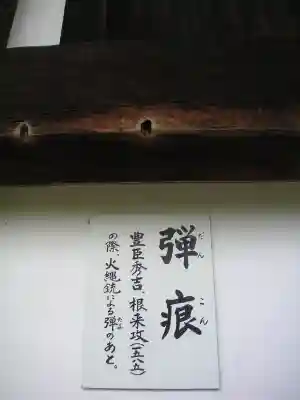 弾痕
だん こん
豊臣秀吉、根来攻(一五八五)
の際、火縄銃による弾のあと。
たま